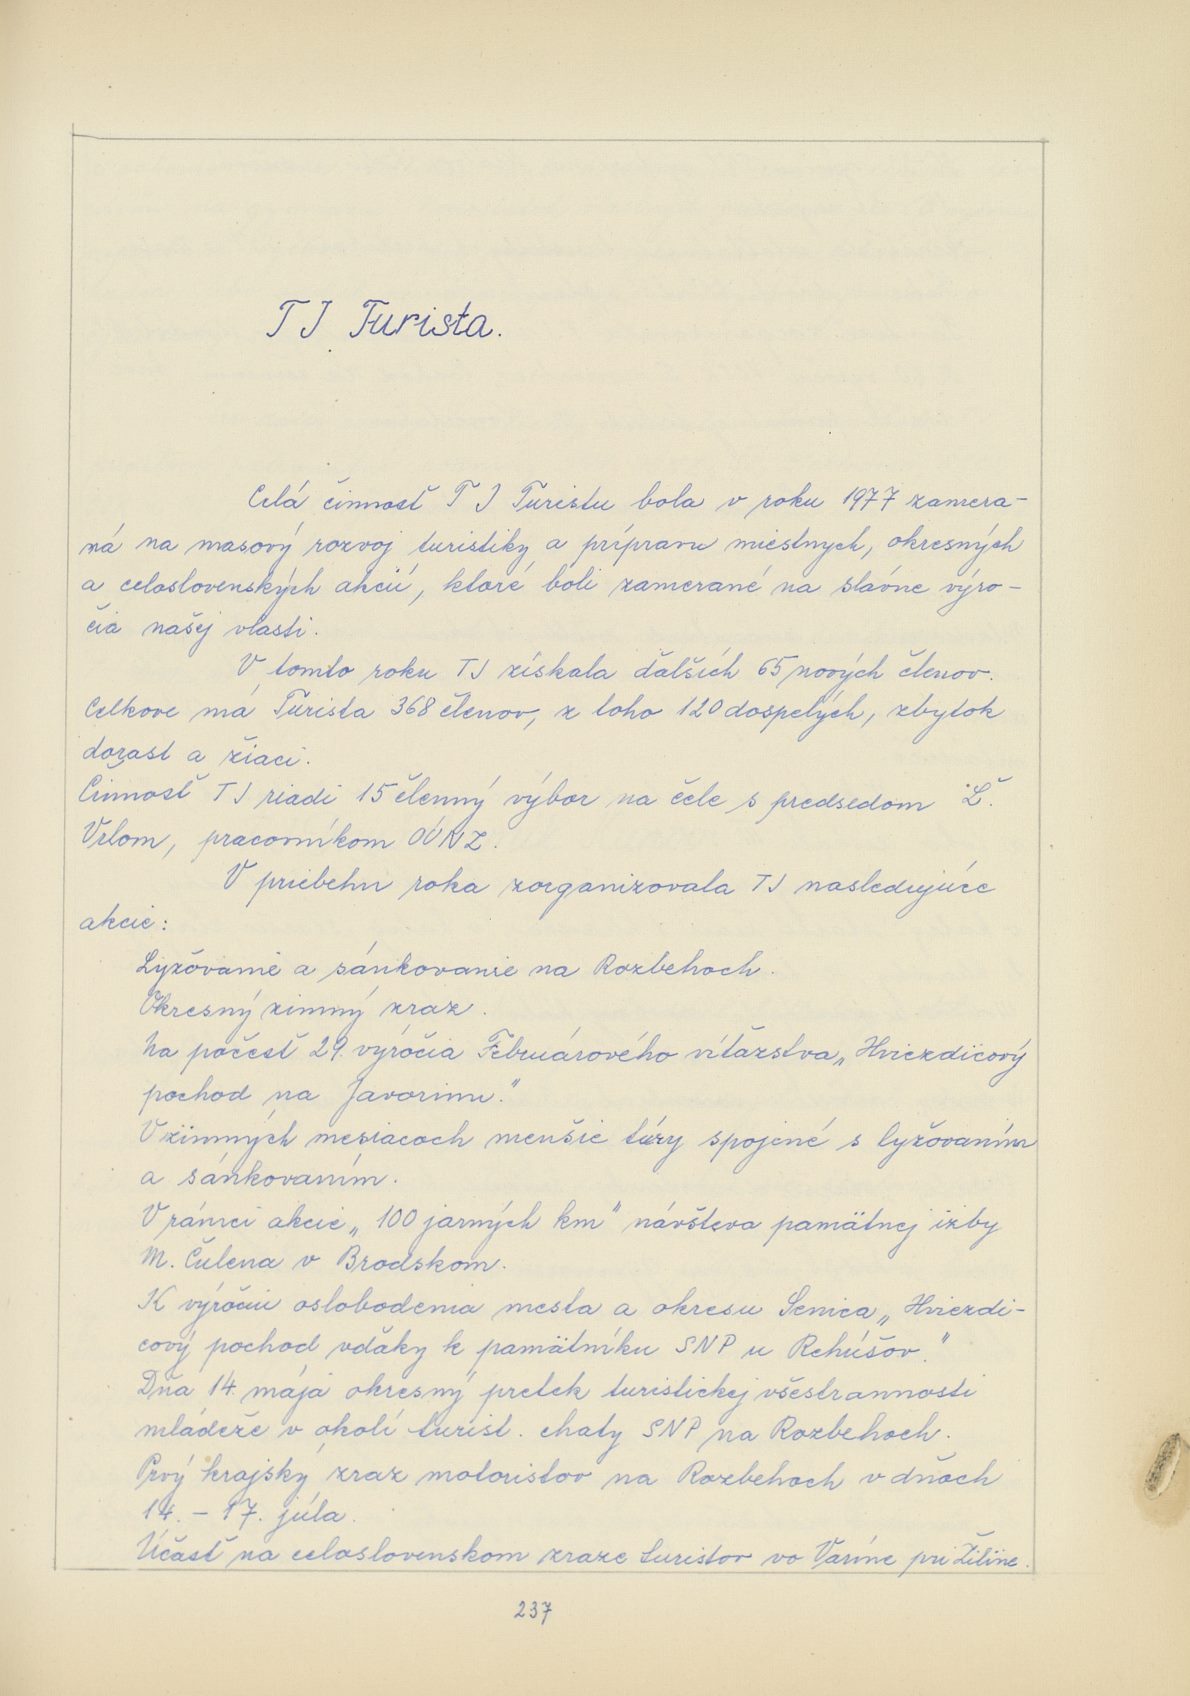 TJ Turista.
Celá činnosť TJ Turistu bola v roku 1977 zamera-
ná na masový rozvoj turistiky a prípravu miestnych, okresných
a celoslovenských akcií, ktoré boli zamerané na slávne výro-
čia našej vlasti.
V tomto roku TJ získala ďalších 65 nových členov.
Celkove má Turista 368 členov, z toho 120 dospelých, zbytok
dorast a žiaci.
Činnosť TJ riadi 15 členný výbor na čele s predsedom Ľ.
Vrlom, pracovníkom OÚNZ.
V priebehu roka zorganizovala TJ nasledujúce
akcie:
Lyžovanie a sánkovanie na Rozbehoch.
Okresný zimný zraz.
Na počesť 29. výročia Februárového víťazstva „Hviezdicový
pochod na Javorinu."
V zimných mesiacoch menšie túry spojené s lyžovaním
a sánkovaním.
V rámci akcie „100 jarných km" návšteva pamätnej izby
M. Čulena v Brodskom.
K výročiu oslobodenia mesta a okresu Senica „Hviezdi-
cový pochod vďaky k pamätníku SNP u Rehúšov."
Dňa 14. mája okresný pretek turistickej všestrannosti
mládeže v okolí turist. chaty SNP na Rozbehoch.
Prvý krajský zraz motoristov na Rozbehoch v dňoch
14. - 17. júla.
Účasť na celoslovenskom zraze turistov vo Varíne pri Žiline.
237